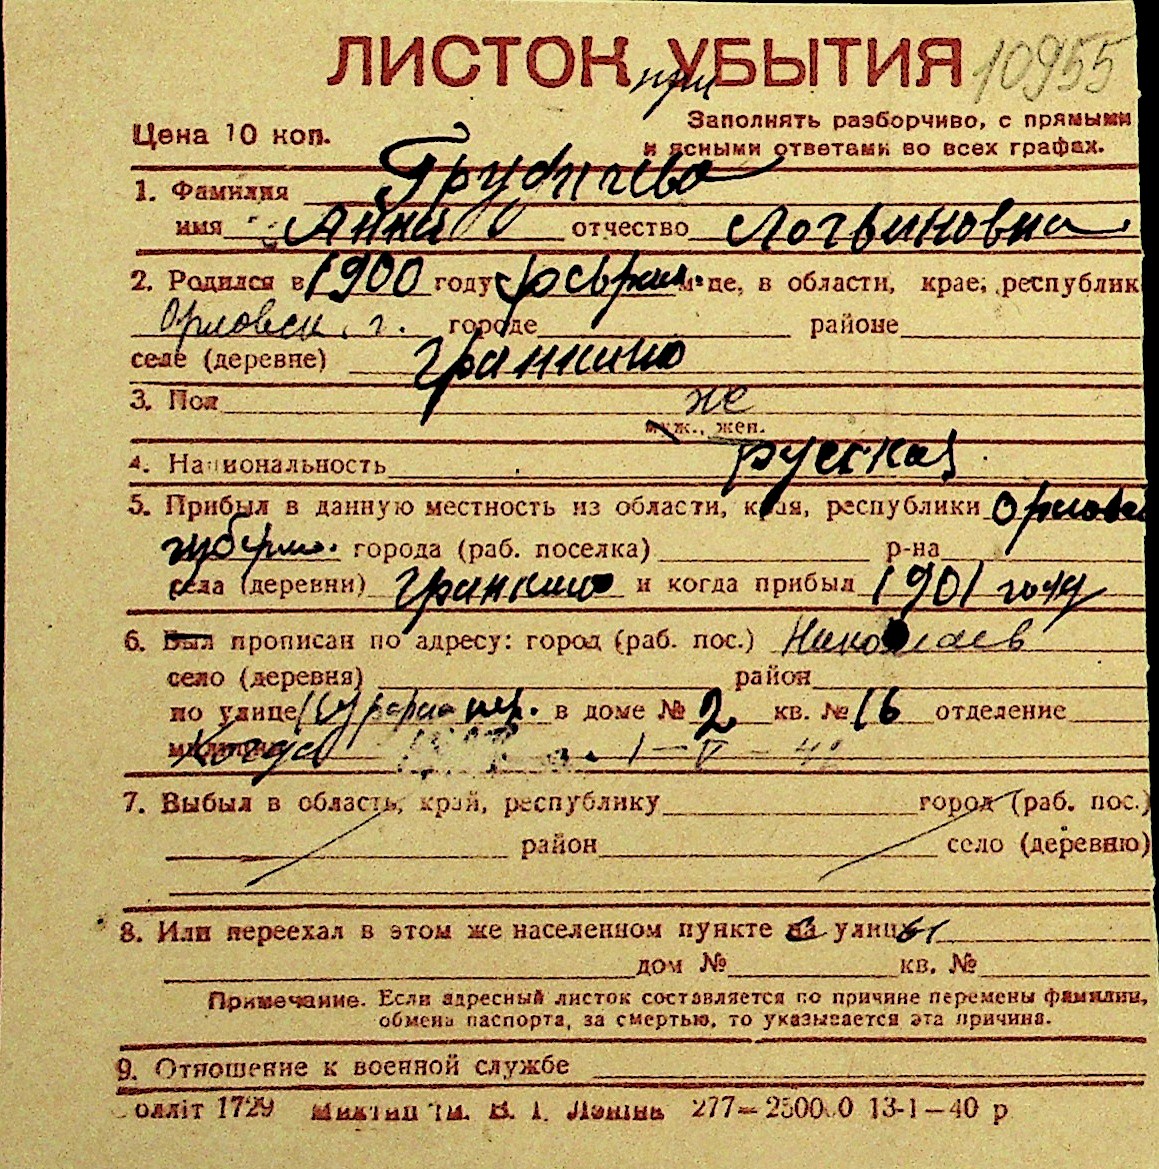 ЛИСТОК при УБЫТИЯ 10955
Цена 10 коп.
Заполнять разборчиво, с прямыми
и ясными ответами во всех графах.
1. Фамилия
имя Анна отчество Логвиновна
2. Родился в 1900 году м-це, в области, крае, республик
Орловск. г. городе районе
селе (деревне) Гранкино
3. Пол же
муж., жен.
4. Национальность русская
5. Прибыл в данную местность из области, края, республики Орловск
губерн. города (раб. поселка) р-на
села (деревни) Гранкино и когда прибыл 1901 году
6. Был прописан по адресу: город (раб. пос.) Николаев
село (деревня) район
по улице пер. в доме № 2 кв. № 16 отделение
милиции Когда 1-V-42
7. Выбыл в область, край, республику город (раб. пос.)
район село (деревню)
8. Или переехал в этом же населенном пункте на улицу
дом № кв. №
Примечание. Если адресный листок составляется по причине перемены фамилии,
обмена паспорта, за смертью, то указывается эта причина.
9. Отношение к военной службе
олліт 1729 ім. В. І. Леніна 277— 13-1—40 р